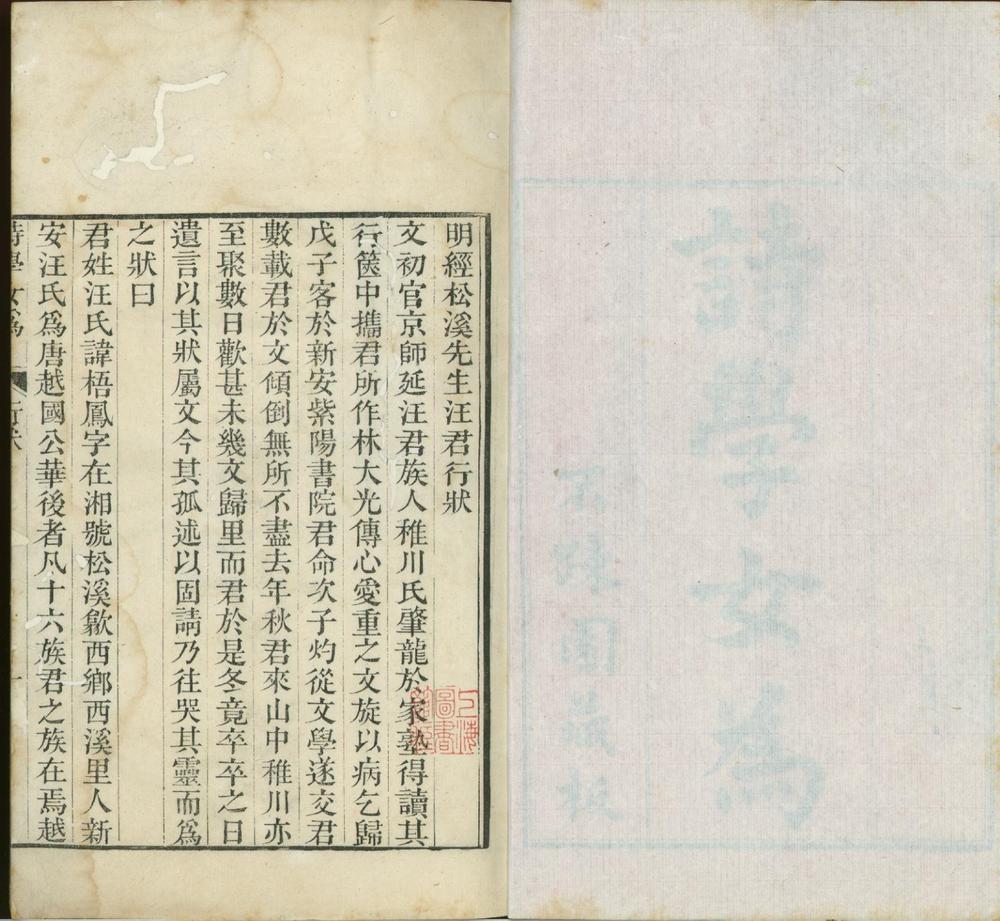 明經松溪先生汪君行狀
文初官京師延汪君族人稚川氏肇龍於家塾得讀其
行篋中攜君所作林大光傳心愛重之文旋以病乞歸
戊子客於新安紫陽書院君命次子灼從文學遂交君
數載君於文傾倒無所不盡去年秋君來山中稚川亦
至聚數日歡甚未幾文歸里而君於是冬竟卒卒之日
遺言以其狀屬文今其孤述以固請乃往哭其靈而爲
之狀曰
君姓汪氏諱梧鳳字在湘號松溪歙西鄉西溪里人新
安汪氏爲唐越國公華後者凡十六族君之族在焉越
詩學女爲
行狀
一
上海
圖書
館藏
詩學女爲
不疎園藏板